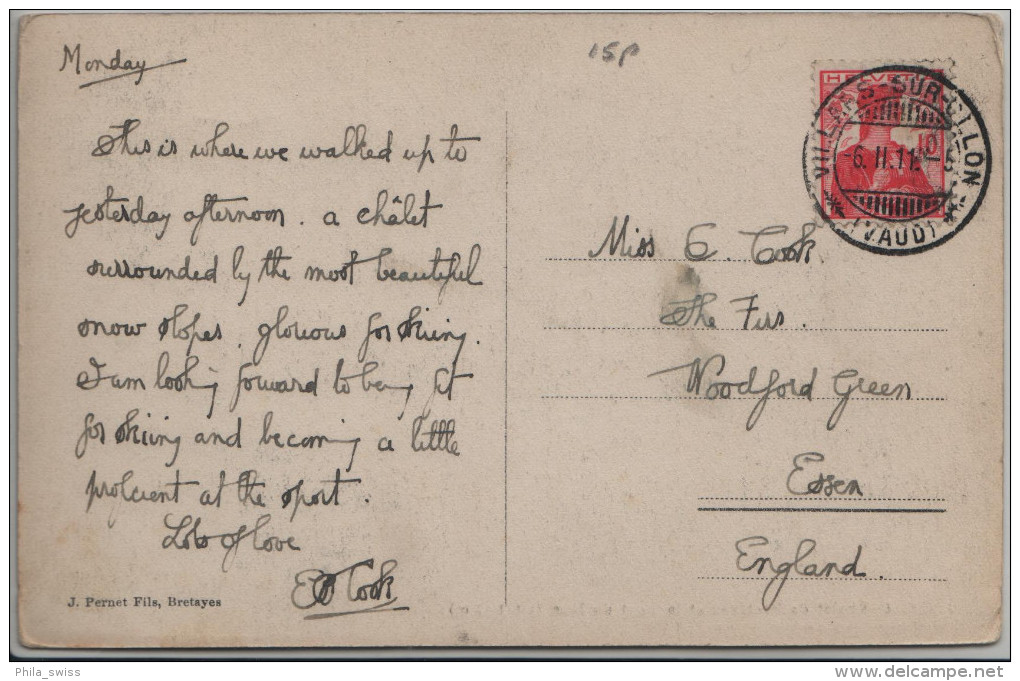 Monday
This is where we walked up to
yesterday afternoon. a châlet
surrounded by the most beautiful
snow slopes. glorious for skiing.
I am looking forward to being fit
for skiing and becoming a little
proficient at the sport.
Lots of love
Cook
J. Pernet Fils, Bretayes
15P
HELVETIA
10
VILLARS-SUR-OLLON
-6.II.11.-5
(VAUD)
Miss C. Cook
The Firs.
Woodford Green
Essex
England.
Phila_swiss
www.delcampe.net